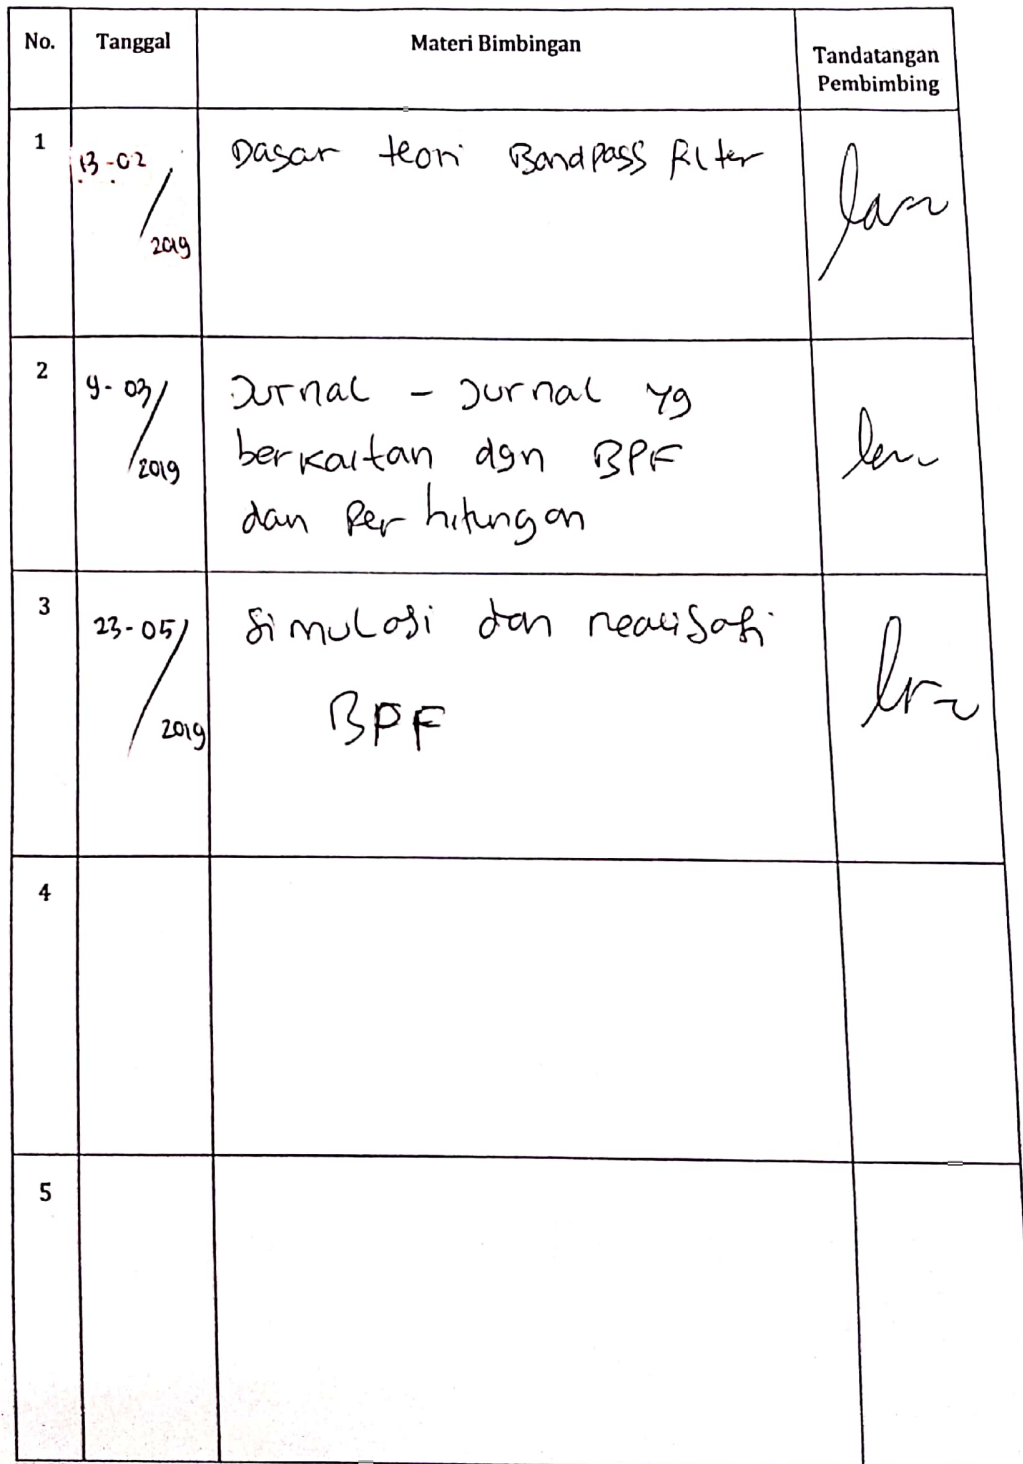 No. Tanggal Materi Bimbingan Tandatangan
Pembimbing
1 13-02/2019 Dasar teori Bandpass filter
2 9-03/2019 Jurnal - Jurnal yg
berkaitan dgn BPF
dan Perhitungan
3 23-05/2019 Simulasi dan realisasi
BPF
4
5